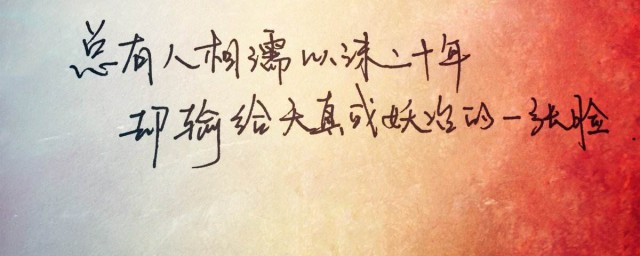 总有人相濡以沫二十年
却输给天真或妖冶的一张脸